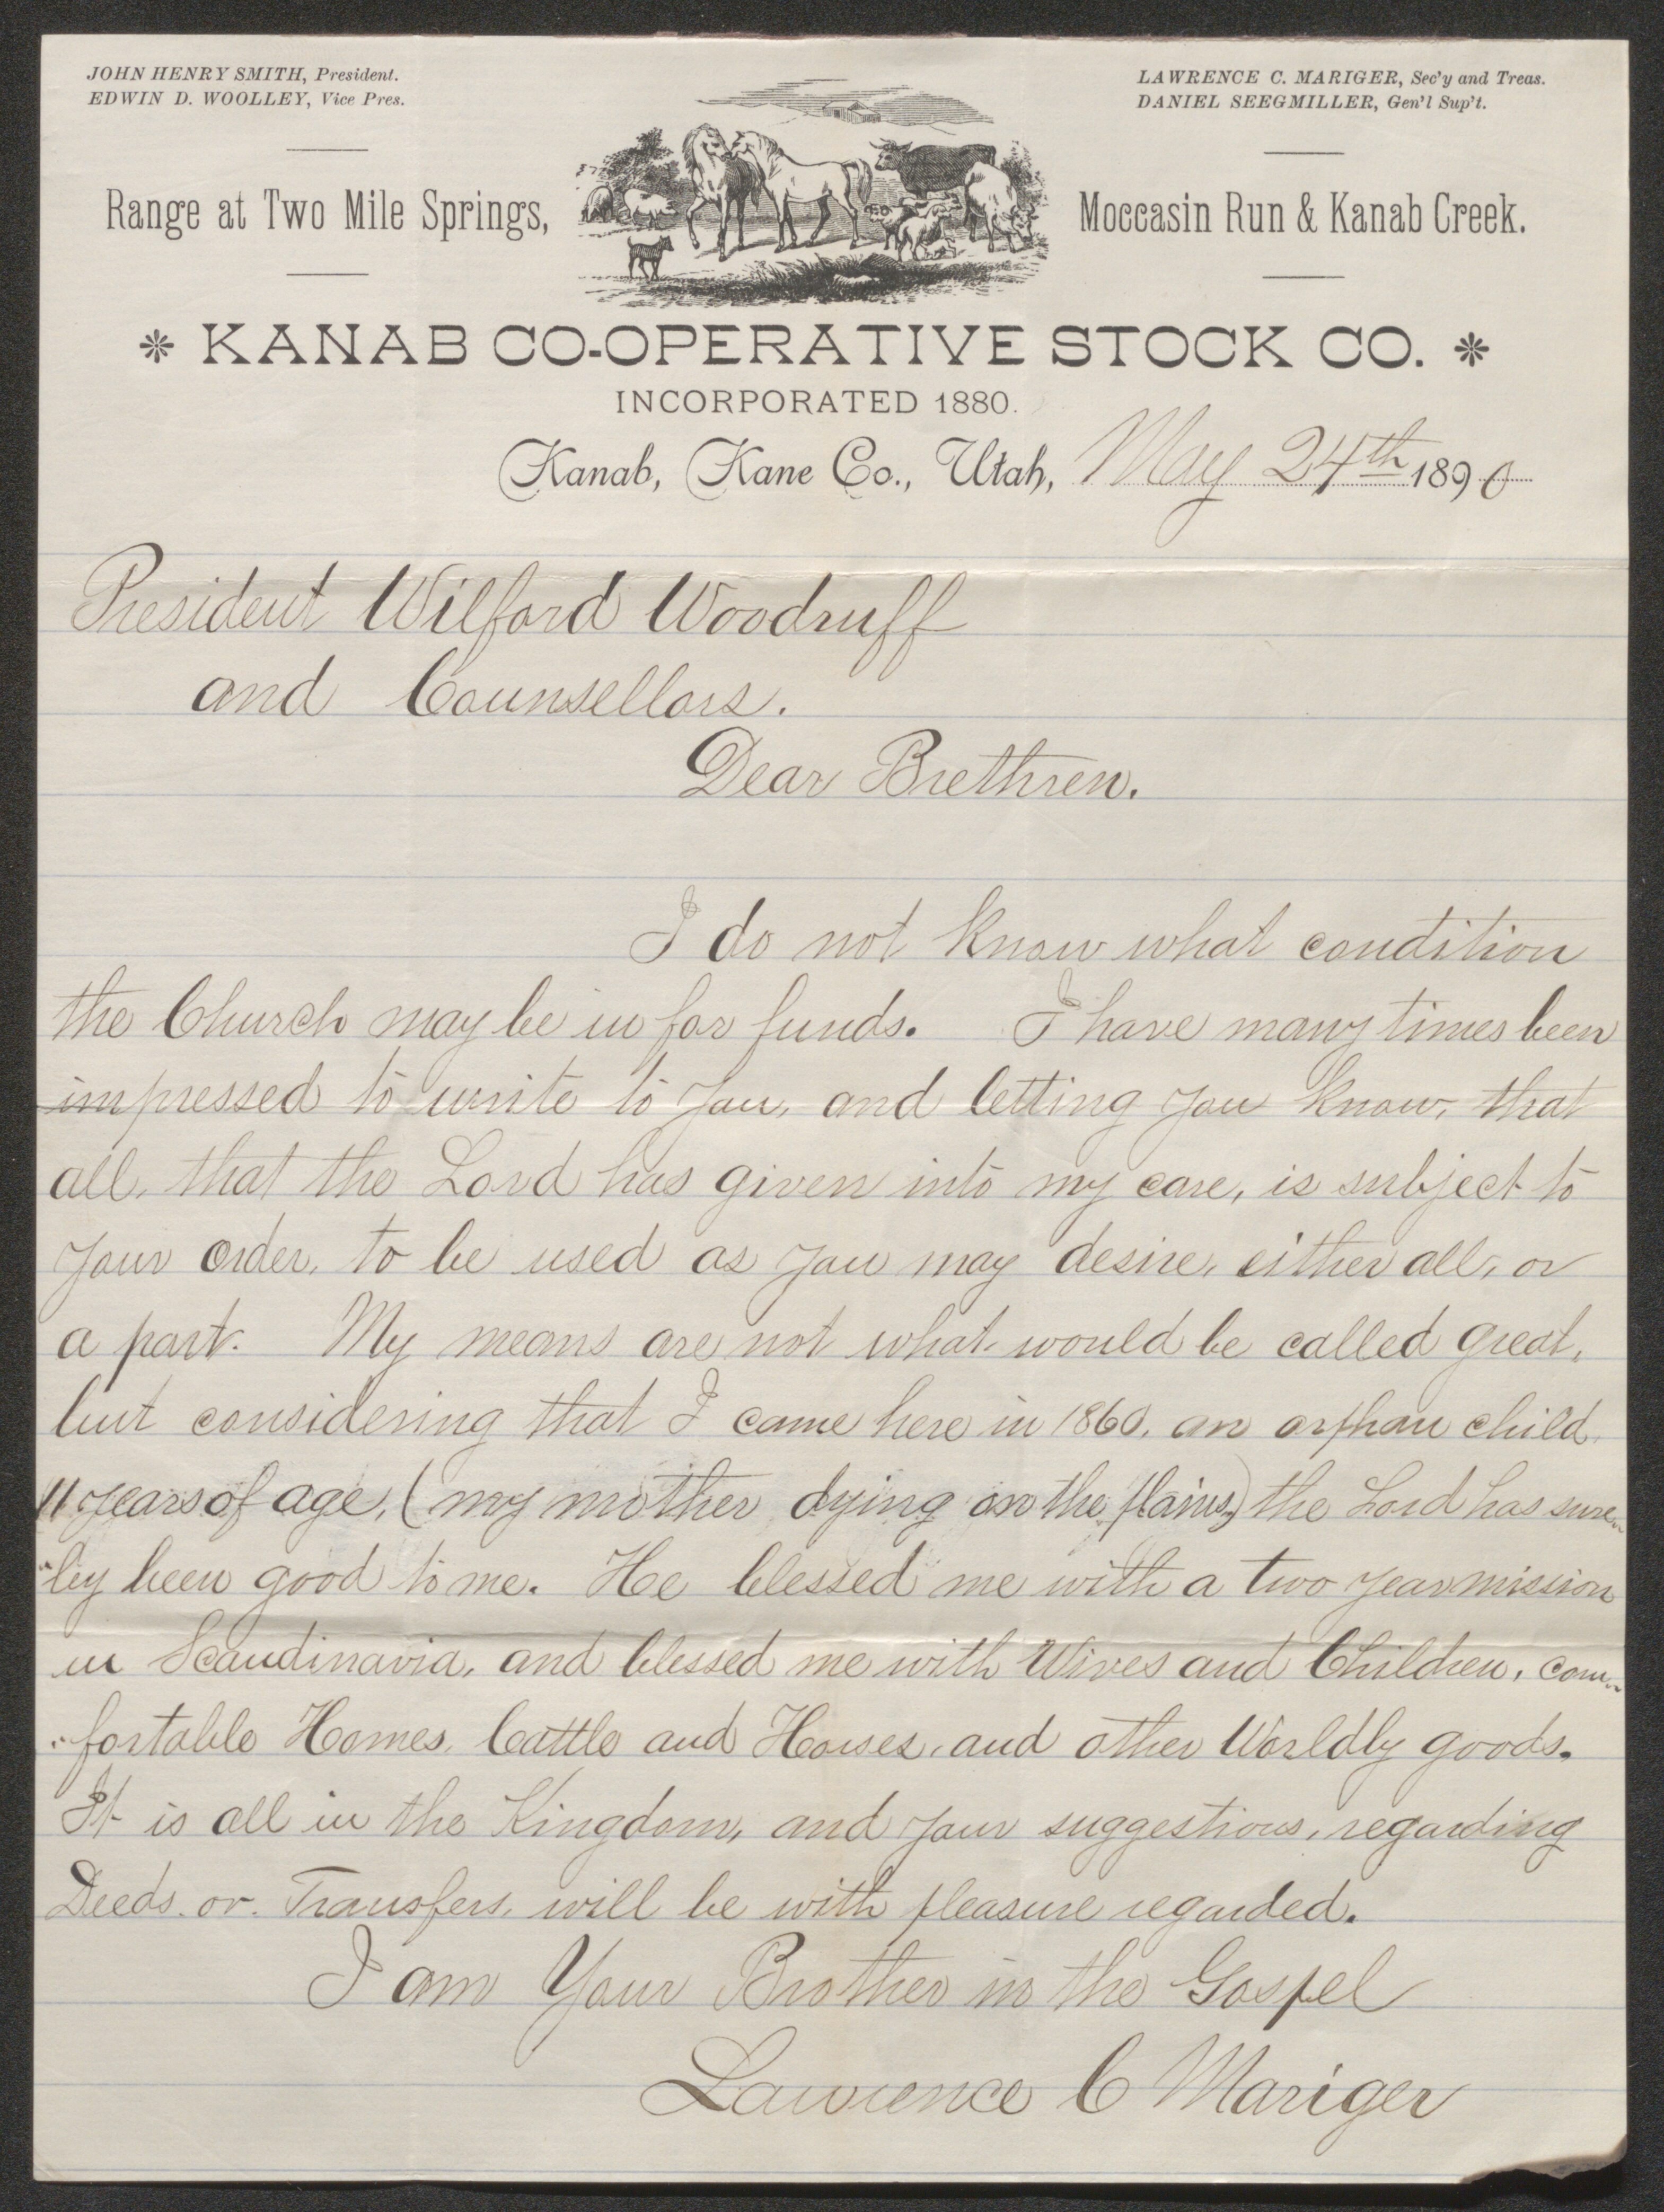 JOHN HENRY SMITH, President.
EDWIN D. WOOLLEY, Vice Pres.
LAWRENCE C. MARIGER, Sec'y and Treas.
DANIEL SEEGMILLER, Gen'l Sup't.
Range at Two Mile Springs,
Moccasin Run & Kanab Creek.
KANAB CO-OPERATIVE STOCK CO.
INCORPORATED 1880.
Kanab, Kane Co., Utah, May 24th 1890
President Wilford Woodruff
and Counsellors.
Dear Brethren.
I do not know what condition
the Church may be in for funds. I have many times been
impressed to write to you, and letting you know, that
all, that the Lord has given into my care, is subject to
your order, to be used as you may desire, either all, or
a part. My means are not what would be called great,
but considering that I came here in 1860, an orphan child
11 years of age, (my mother dying on the plains,) the Lord has sure-
-ly been good to me. He blessed me with a two year mission
in Scandinavia, and blessed me with Wives and Children, com-
-fortable Homes, Cattle and Horses, and other Worldly goods.
It is all in the Kingdom, and your suggestions, regarding
Deeds or Transfers, will be with pleasure regarded.
I am Your Brother in the Gospel
Lawrence C Mariger